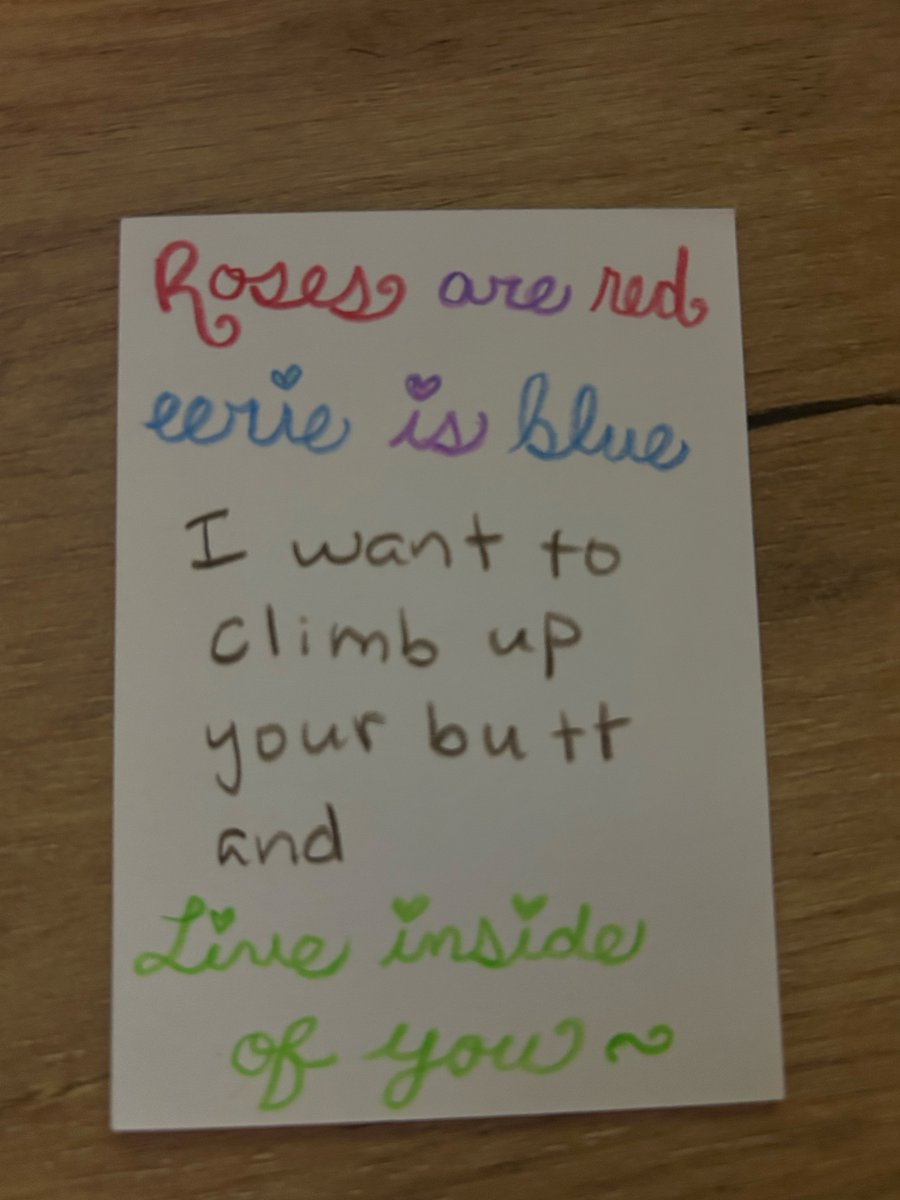 Roses are red
eerie is blue
I want to
climb up
your butt
and
Live inside
of you ~